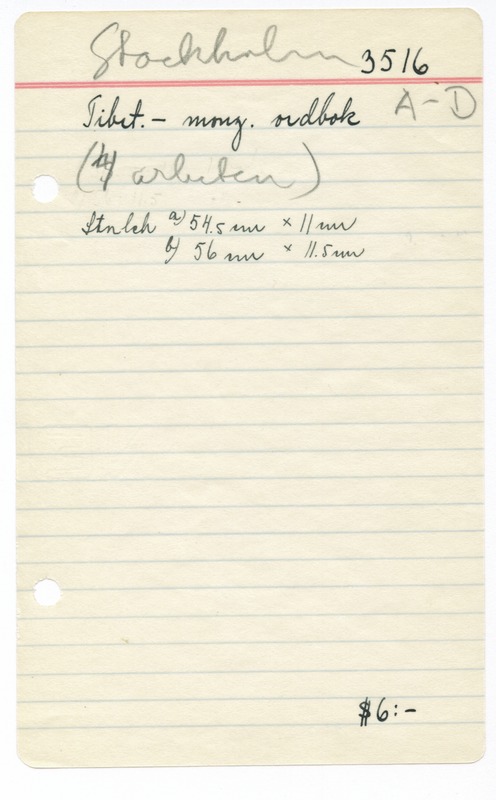 Stockholm 3516
Tibet. – mong. ordbok A–D
(4 arbeten)
Storlek a) 54.5 cm × 11 cm
b) 56 cm × 11.5 cm
$6:-